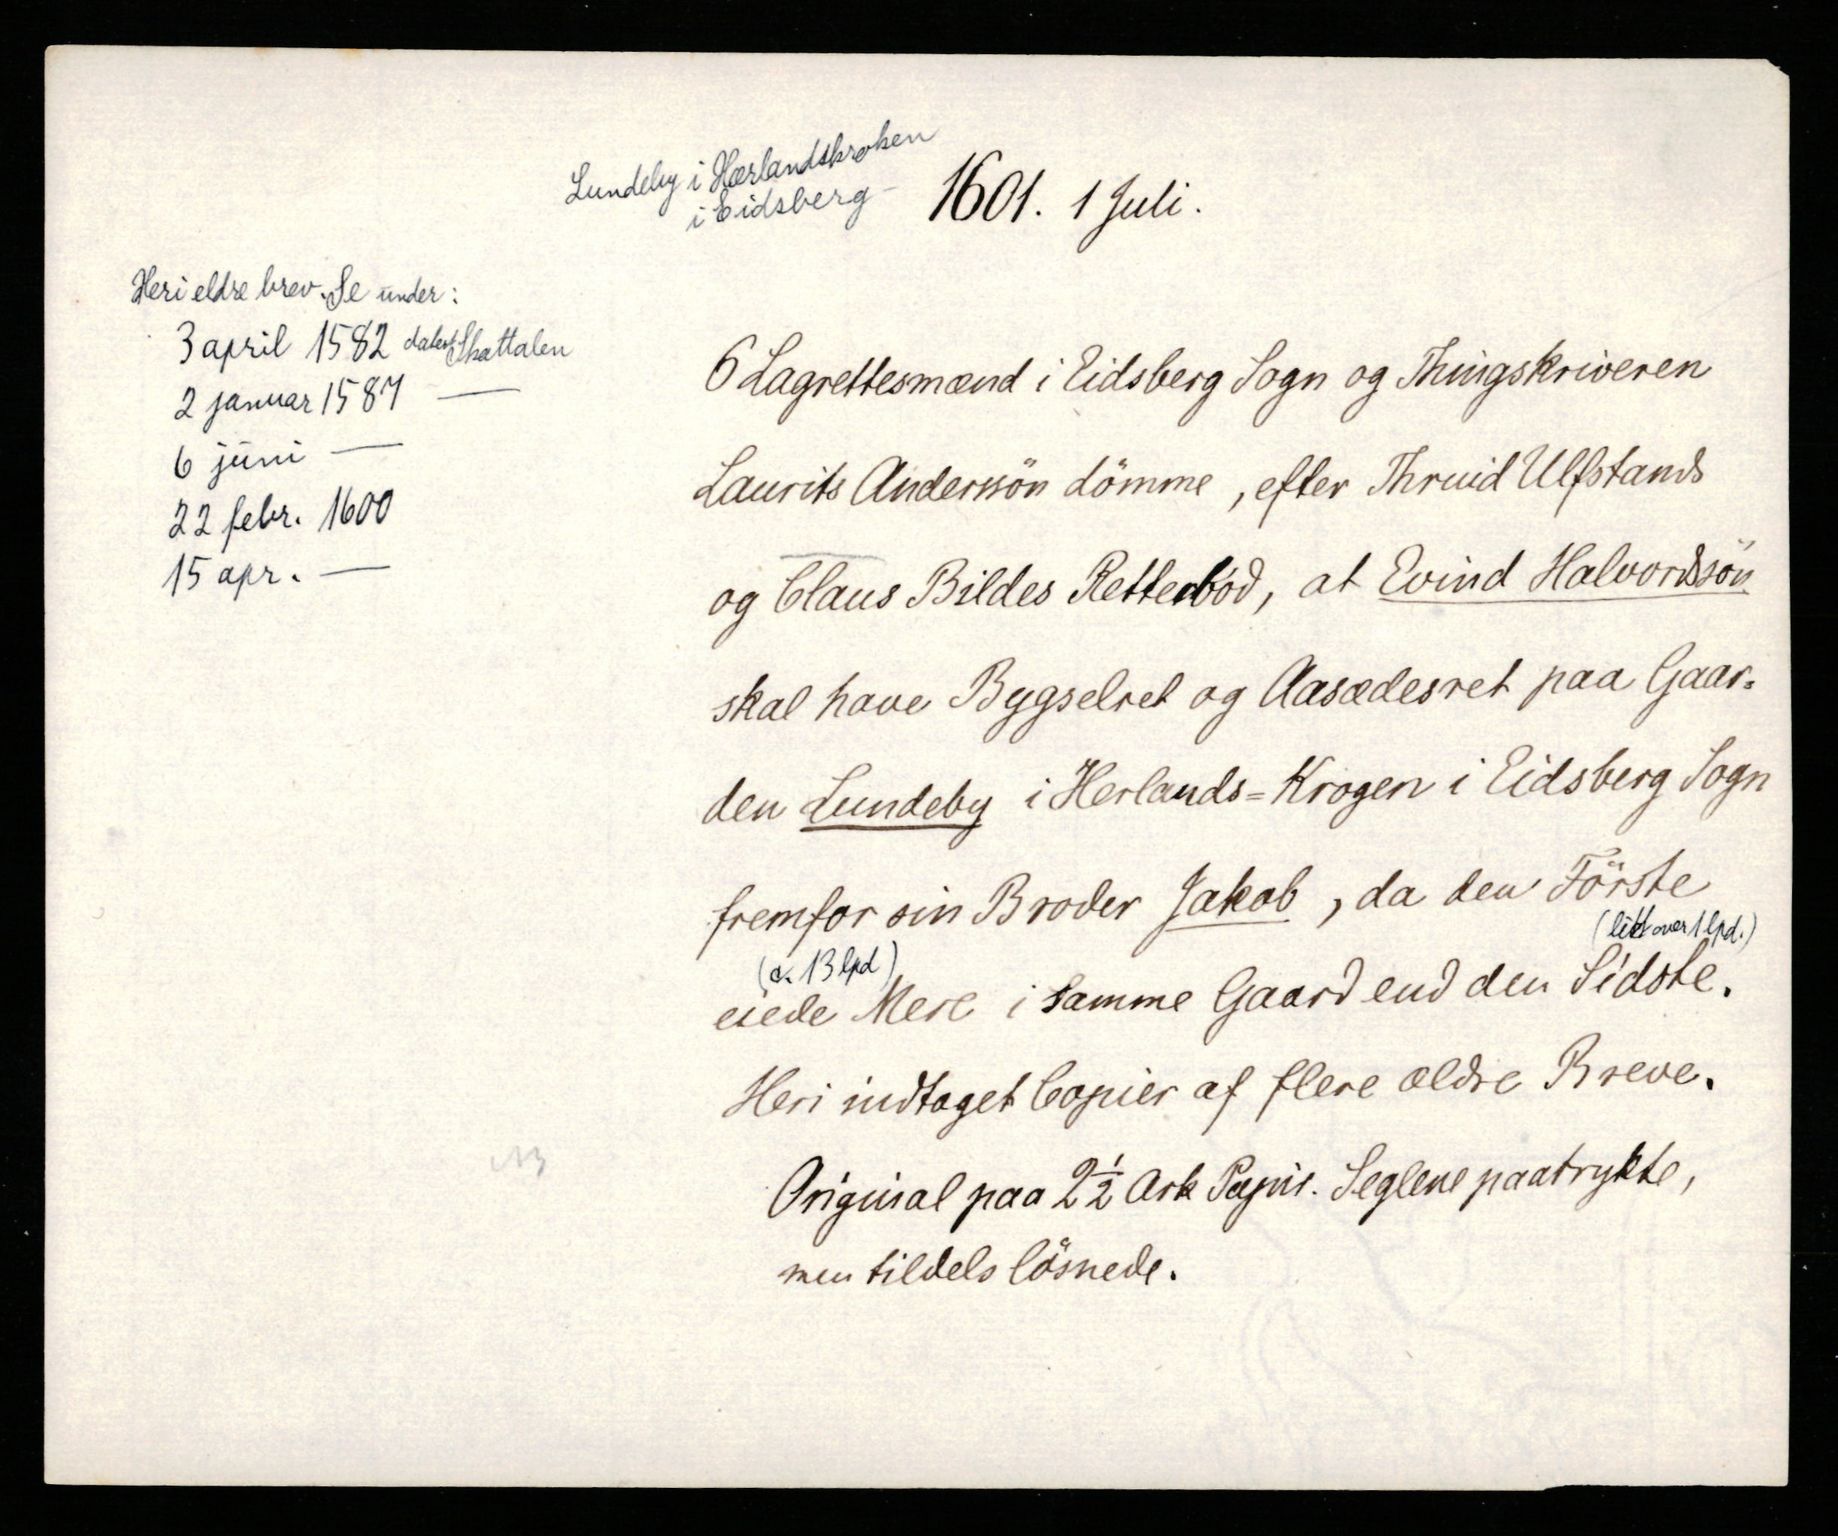 Lundeby i Hærlandskroken
i Eidsberg
1601. 1 Juli.
Heri eldre brev. Se under:
3 april 1582 datert Skattalen
2 januar 1587 —
6 juni —
22 febr. 1600
15 apr. —
6 Lagrettesmænd i Eidsberg Sogn og Thingskriveren
Laurits Anderssön dömme, efter Thruid Ulfstands
og Claus Bildes Retterbód, at Evind Halvordssön
skal have Bygselret og Aasædesret paa Gaar=
den Lundeby i Herlands=Krogen i Eidsberg Sogn
fremfor sin Broder Jakob, da den Förste
(litt over 1 lpd.)
(c. 13 lpd)
eiede Mere i samme Gaard end den Sidste.
Heri indtaget Copier af flere ældre Breve.
Original paa 2½ Ark Papir. Seglene paatrykte,
men tildels lösnede.